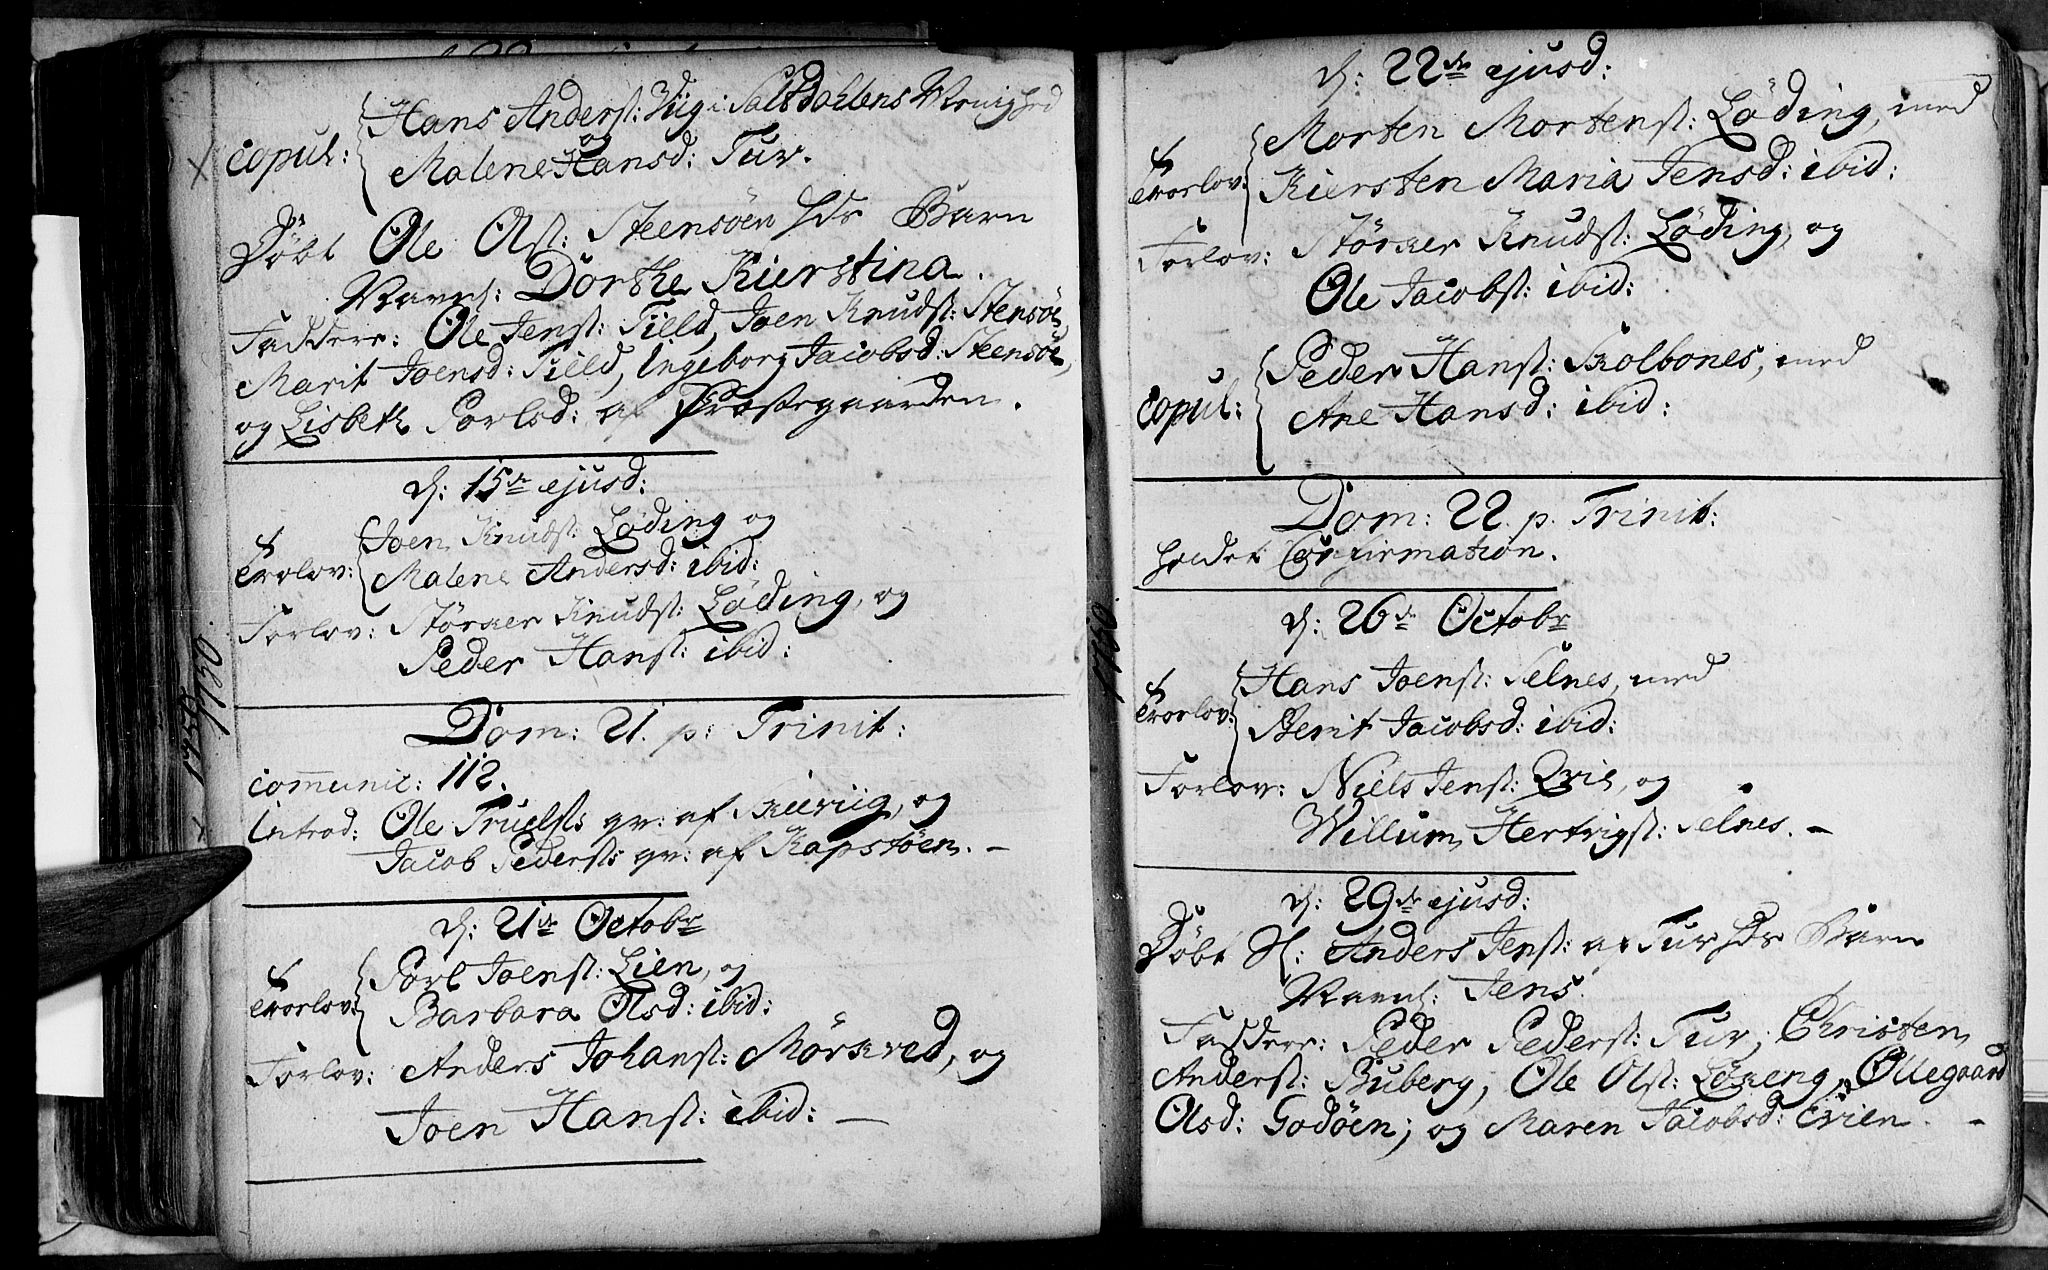 Copul: Hans Anderst: Viig i Saltdahlens Menighed
og
Malene Hansd: Tuv.
Döbt Ole Olst: Steensöen hds Barn
Navnl: Dorthe Kierstina.
Faddere: Ole Jenst: Field, Joen Knudst: Stensöe
Marit Joensd: Field, Ingeborg Jacobsd: Steensöe,
og Lisbeth Porlsd: af Præstegaarden.
d: 15de ejusd:
Trolov: Joen Knudst: Löding og
Malene Andersd: ibid:
Forlov: Störker Knudst: Löding, og
Peder Hanst: ibid:
1750
1750.
Dom: 21. p: Trinit:
Comunic: 112.
Introd: Ole Truelsts qv: af Kierviig, og
Jacob Pedersts qv: af Kapstöen. –
d: 21de Octobr
Trorlov: Porl Joenst: Lien, og
Barbara Olsd: ibid:
Forlov: Anders Johanst: Mörkved, og
Joen Hanst: ibid: –
d: 22de ejusd:
Trorlov: Morten Mortenst: Löding, med
Kiersten Maria Jensd: ibid:
Forlov: Störker Knudst: Löding, og
Ole Jacobst: ibid:
Copul: Peder Hanst: Skolbones, med
Ane Hansd: ibid:
Dom: 22. p. Trinit:
holdet Confirmation.
1750.
d: 26de Octobr
Trorlov: Hans Joenst: Selnes, med
Berit Jacobsd: ibid:
Forlov: Niels Jenst: Qvie, og
Willum Hertvigst: Selnes. –
d: 29de ejusd:
Döbt Sl: Anders Jenst: af Tuv hds Barn
Navnl: Jens.
Faddere: Peder Pederst: Tuv, Christen
Anderst: Buberg, Ole Olst: Lökeng, Ollegaard
Olsd: Godöen; og Maren Jacobsd: Evien. –